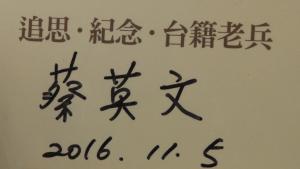 追思·紀念·台籍老兵
蔡英文
2016.11.5